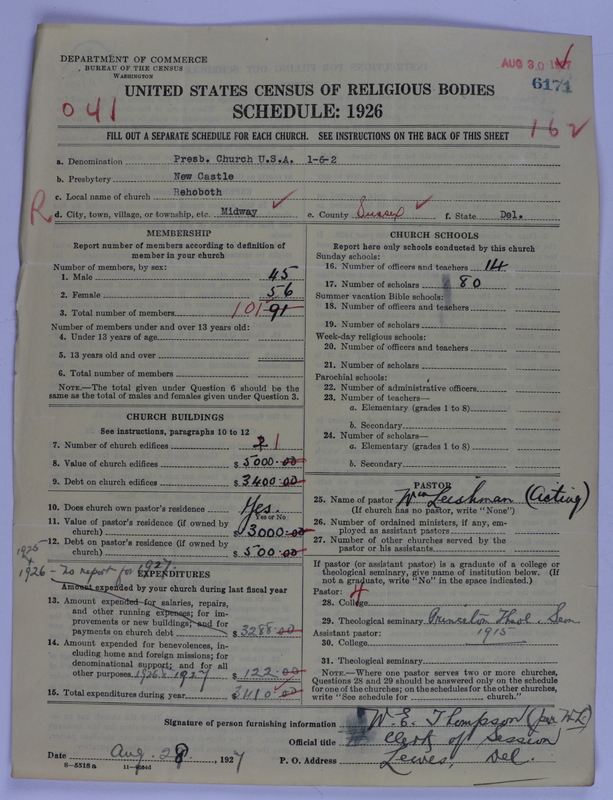 DEPARTMENT OF COMMERCE
BUREAU OF THE CENSUS
WASHINGTON
AUG 30 1927
6171
UNITED STATES CENSUS OF RELIGIOUS BODIES
041
SCHEDULE: 1926
FILL OUT A SEPARATE SCHEDULE FOR EACH CHURCH. SEE INSTRUCTIONS ON THE BACK OF THIS SHEET
162
a. Denomination Presb. Church U.S.A. 1-6-2
b. Presbytery New Castle
c. Local name of church Rehoboth
R
d. City, town, village, or township, etc. Midway e. County Sussex f. State Del.
MEMBERSHIP
Report number of members according to definition of
member in your church
Number of members, by sex:
1. Male 45
2. Female 56
3. Total number of members 101 91
Number of members under and over 13 years old:
4. Under 13 years of age
5. 13 years old and over
6. Total number of members
NOTE.—The total given under Question 6 should be the
same as the total of males and females given under Question 3.
CHURCH BUILDINGS
See instructions, paragraphs 10 to 12
7. Number of church edifices 2 1
8. Value of church edifices $ 5000.00
9. Debt on church edifices $ 3400.00
10. Does church own pastor's residence Yes.
Yes or No
11. Value of pastor's residence (if owned by
church) $ 3000.00
12. Debt on pastor's residence (if owned by
church) $ 500.00
1925
+
1926 - no report for 1927.
EXPENDITURES
Amount expended by your church during last fiscal year
13. Amount expended for salaries, repairs,
and other running expenses; for im-
provements or new buildings; and for
payments on church debt $ 3288.00
14. Amount expended for benevolences, in-
cluding home and foreign missions; for
denominational support; and for all
other purposes. 1926 & 1927 $ 122.00
15. Total expenditures during year $ 3410.00
CHURCH SCHOOLS
Report here only schools conducted by this church
Sunday schools:
16. Number of officers and teachers 14
17. Number of scholars 80
Summer vacation Bible schools:
18. Number of officers and teachers
19. Number of scholars
Week-day religious schools:
20. Number of officers and teachers
21. Number of scholars
Parochial schools:
22. Number of administrative officers
23. Number of teachers—
a. Elementary (grades 1 to 8)
b. Secondary
24. Number of scholars—
a. Elementary (grades 1 to 8)
b. Secondary
PASTOR
25. Name of pastor Wm Leishman (Acting)
(If church has no pastor, write "None")
26. Number of ordained ministers, if any, em-
ployed as assistant pastors
27. Number of other churches served by the
pastor or his assistants
If pastor (or assistant pastor) is a graduate of a college or
theological seminary, give name of institution below. (If
not a graduate, write "No" in the space indicated.)
Pastor: 4
28. College
29. Theological seminary Princeton Theol. Sem
Assistant pastor: 1915
30. College
31. Theological seminary
NOTE.—Where one pastor serves two or more churches,
Questions 28 and 29 should be answered only on the schedule
for one of the churches; on the schedules for the other churches,
write "See schedule for church."
Signature of person furnishing information W. E. Thompson (per W.L.)
Official title Clerk of Session
Date Aug. 28, 1927 P. O. Address Lewes, Del.
8—5518a